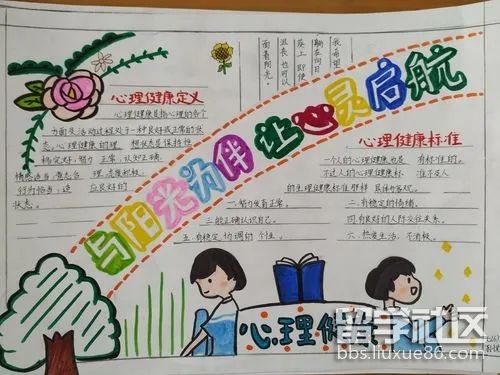 我希望
躺在向日
葵上 即使
沮丧 也可以
面着阳光。
与阳光为伴 让心灵启航
心理健康定义
心理健康是指心理的各个
方面及活动过程处于一种良好或正常的状
态。心理健康的理 想状态是保持性
格完好、智力 正常、认知正确、
情感适当、意志合 理、态度积极、
行为恰当、适 应良好的
状态。
心理健康标准
一个人的心理健康也是 有标准的。
不过人的心理健康标 准不及人
的生理健康标准那样 具体与客观。
一.智力发育正常。 二.有稳定的情绪。
三.能正确认识自己。 四.有良好的人际交往关系。
五.有稳定、协调的个性。 六.热爱生活,不消极。
心理健
留学社区
bbs.liuxue86.com